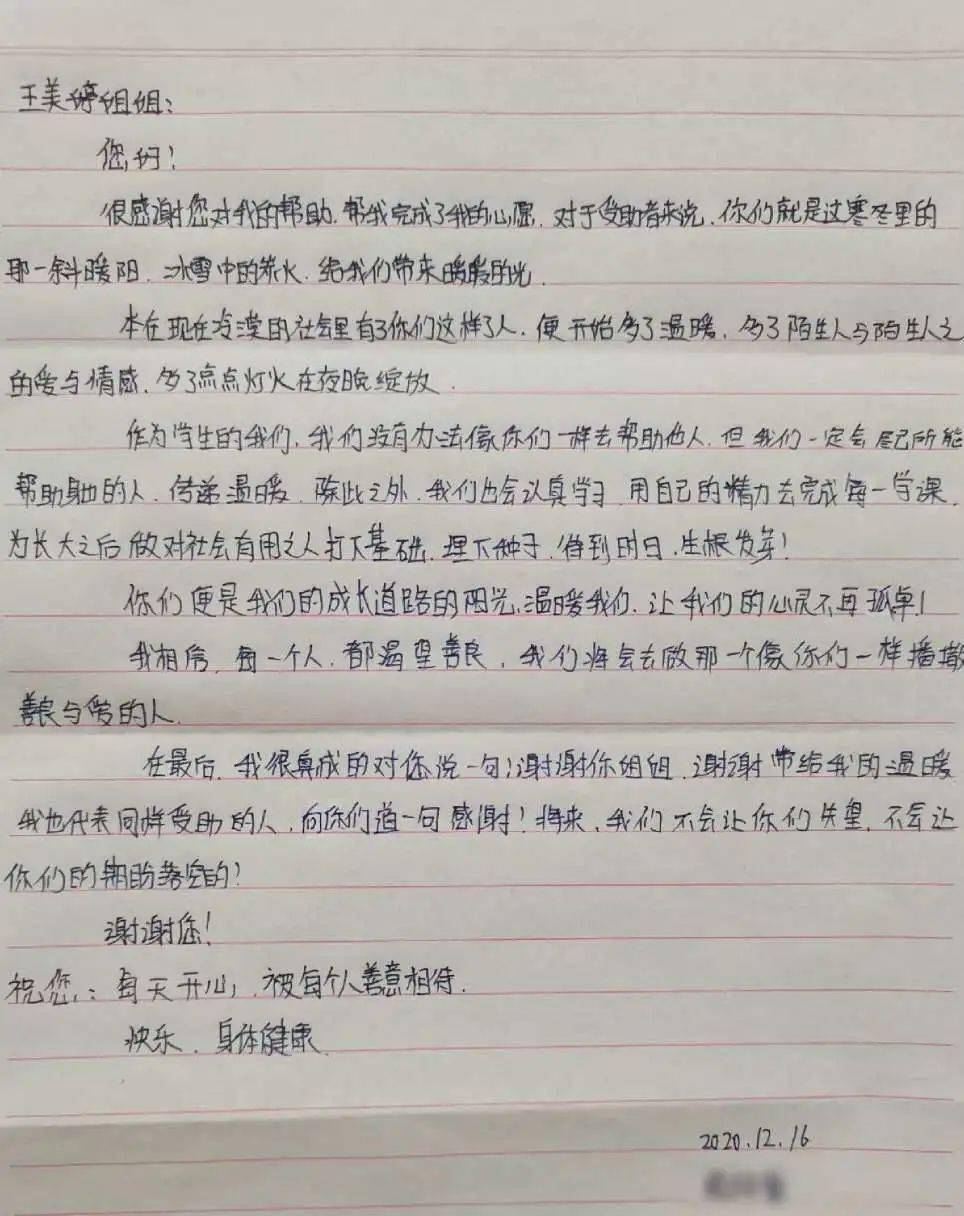 王美婷姐姐：
您好！
很感谢您对我的帮助，帮我完成了我的心愿，对于受助者来说，你们就是这寒冬里的
那一斜暖阳，冰雪中的柴火，给我们带来暖暖的光。
本在现在冷漠的社会里有了你们这样了人，便开始多了温暖，多了陌生人与陌生人之
的爱与情感，多了点点灯火在夜晚绽放。
作为学生的我们，我们没有办法像你们一样去帮助他人，但我们一定会尽己所能
帮助身边的人，传递温暖，除此之外，我们也会认真学习，用自己的精力去完成每一学课，
为长大之后做对社会有用之人打下基础，埋下种子，待到时日，生根发芽！
你们便是我们的成长道路的阳光，温暖我们，让我们的心灵不再孤单！
我相信，每一个人，都渴望善良，我们将会去做那一个像你们一样播撒
善良与爱的人。
在最后，我很真诚的对您说一句：谢谢你姐姐，谢谢带给我的温暖
我也代表同样受助的人，向你们道一句感谢！将来，我们不会让你们失望，不会让
你们的期盼落空的！
谢谢您！
祝您：每天开心，被每个人善意相待。
快乐，身体健康。
2020.12.16